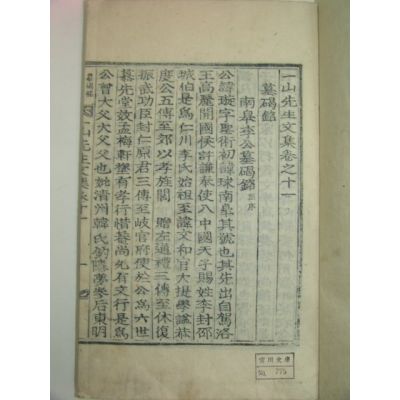 一山先生文集卷之十一
墓碣銘
南臯李公墓碣銘 并序
公諱璇字聖術初諱球南臯其號也其先出自駕洛
王高麗開國侯許謙奉使入中國天子賜姓李封邵
城伯是爲仁川李氏始祖至諱文和官大提學諡恭
度公五傳至郊以孝旌閭 贈左通禮三傳至休復
振武功臣封仁原君三傳至岐官府使於公爲六世
墓先堂效孟梅軒墪有孝行惜墓尚允有文行是爲
公曾大父大父也妣淸州韓氏釣隱夢參后東明
一山先生文集卷十一
一
No. 775